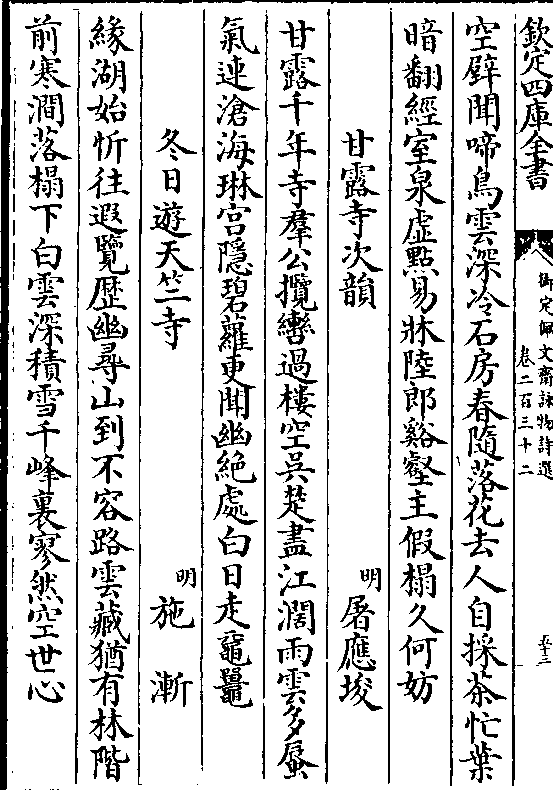 欽定四庫全書
御定佩文齋詠物詩選
卷二百三十二
五十三
空聲聞啼鳥雲深冷石房春隨落花去人自採茶忙葉
暗翻經室泉虛點易牀陸郎谿壑主假榻久何妨
甘露寺次韻
明屠應埈
甘露千年寺羣公攬轡過樓空吳楚盡江濶雨雲多蜃
氣連滄海琳宫隱碧蘿更聞幽絶處白日走黿鼉
冬日遊天竺寺
明施漸
緣湖始忻往遐覽歴幽尋山到不容路雲藏猶有林階
前寒澗落榻下白雲深積雪千峰裏寥然空世心